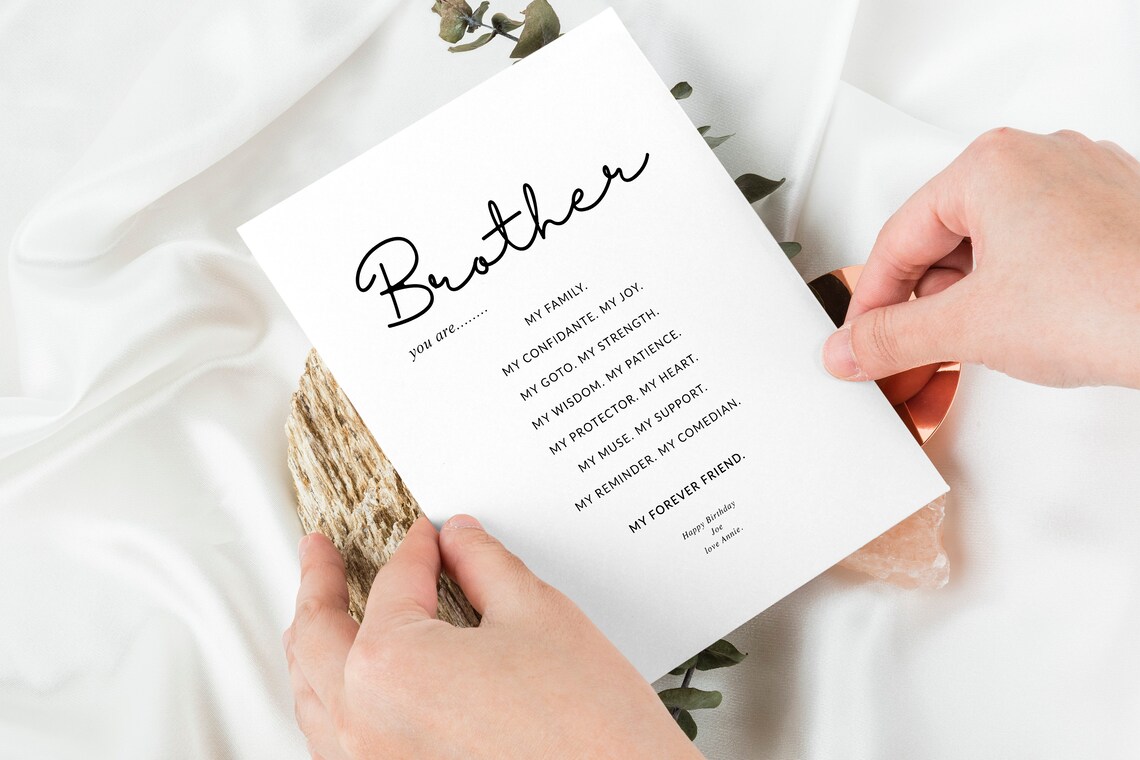 Brother
you are........
MY FAMILY.
MY CONFIDANTE. MY JOY.
MY GOTO. MY STRENGTH.
MY WISDOM. MY PATIENCE.
MY PROTECTOR. MY HEART.
MY MUSE. MY SUPPORT.
MY REMINDER. MY COMEDIAN.
MY FOREVER FRIEND.
Happy Birthday
Joe
love Annie.